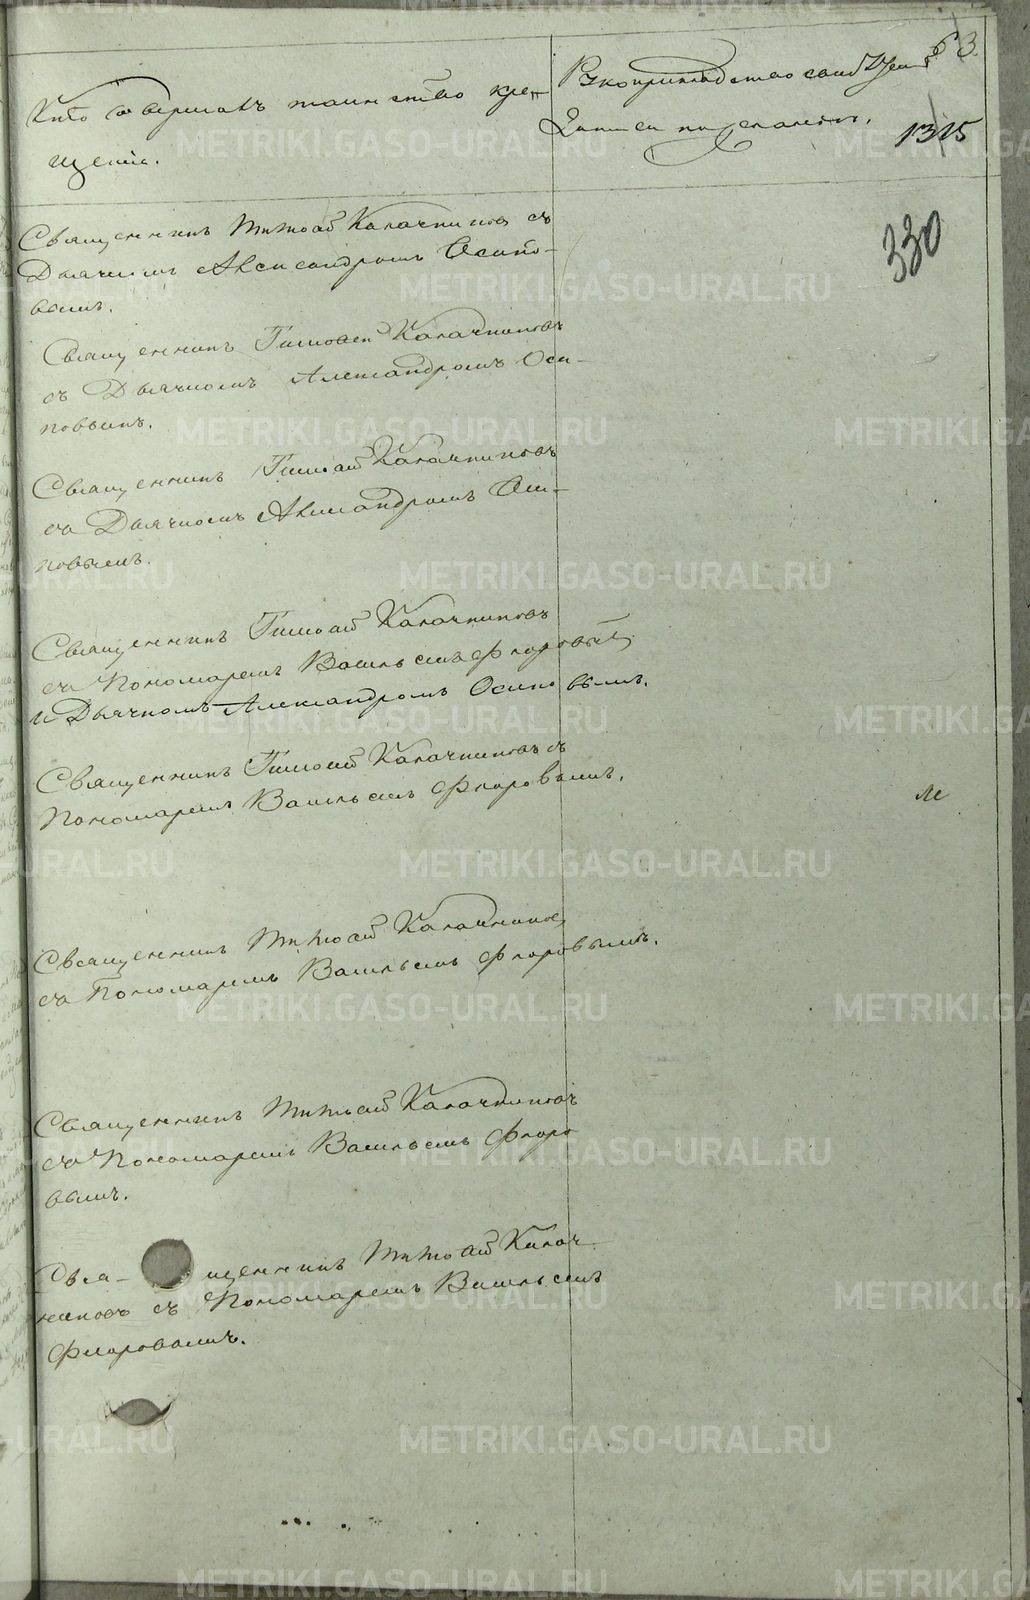 63
Кто совершалъ таинство кре-
щенія.
Рукоприкладство свидѣтелей
записи по желанію.
1315
330
Священникъ Тимоѳей Калачниковъ съ
Дьячкомъ Александромъ Осипо-
вымъ.
Священникъ Тимоѳей Калачниковъ
съ Дьячкомъ Александромъ Оси-
повымъ.
Священникъ Тимоѳей Калачниковъ
съ Дьячкомъ Александромъ Оси-
повымъ.
Священникъ Тимоѳей Калачниковъ
съ Пономаремъ Васильемъ Флоровымъ
и Дьячкомъ Александромъ Осиповымъ.
Священникъ Тимоѳей Калачниковъ съ
Пономаремъ Васильемъ Флоровымъ.
Священникъ Тимоѳей Калачниковъ
съ Пономаремъ Васильемъ Флоровымъ.
Священникъ Тимоѳей Калачниковъ
съ Пономаремъ Васильемъ Флоро
вымъ.
Свя- щенникъ Тимоѳей Калач
никовъ съ Пономаремъ Васильемъ
Флоровымъ.
METRIKI.GASO-URAL.RU